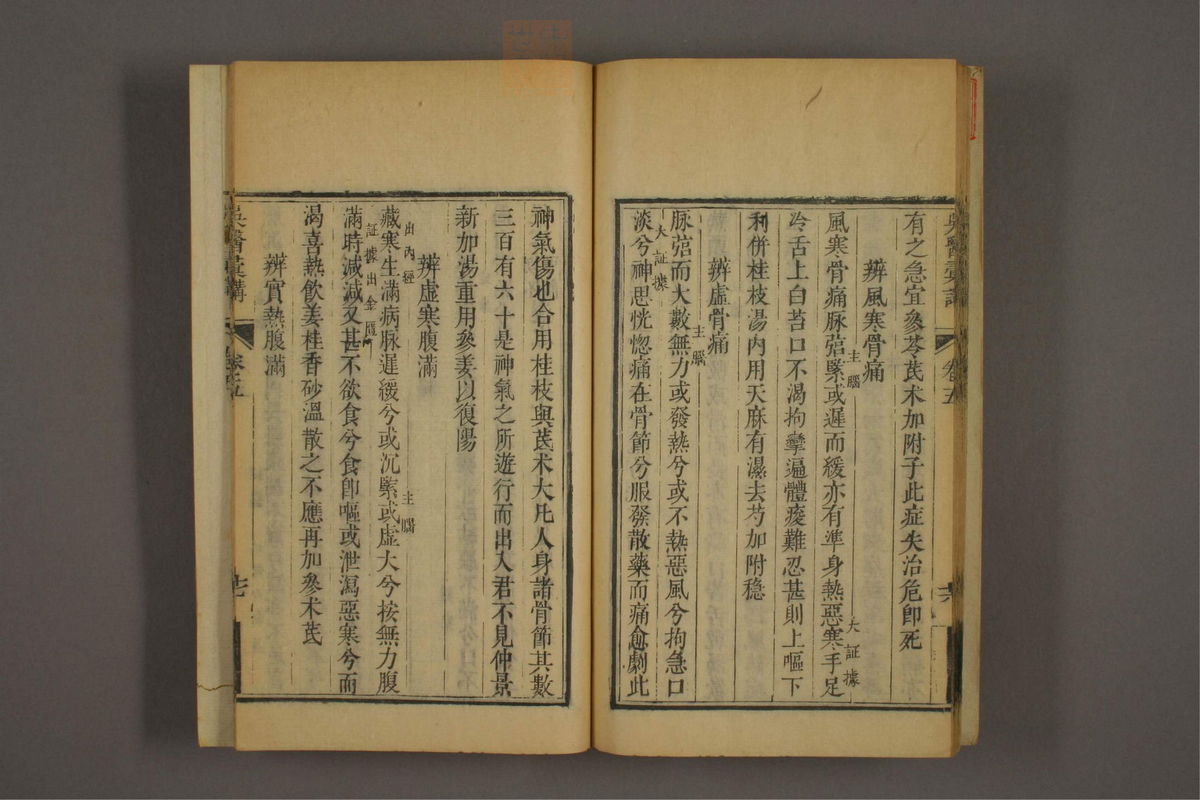 吳醫彙講
卷五
有之急宜參苓芪术加附子此症失治危卽死
辨風寒骨痛
主腦
大証據
風寒骨痛脉弦緊或遲而緩亦有準身熱惡寒手足
冷舌上白苔口不渴拘攣遍體痠難忍甚則上嘔下
利併桂枝湯內用天麻有濕去芍加附穩
辨虛骨痛
主腦
脉弦而大數無力或發熱兮或不熱惡風兮拘急口
大証據
淡兮神思恍惚痛在骨節兮服發散藥而痛愈劇此
神氣傷也合用桂枝與芪术大凡人身諸骨節其數
三百有六十是神氣之所遊行而出入君不見仲景
新加湯重用參姜以復陽
辨虛寒腹滿
出內經
主腦
藏寒生滿病脉遲緩兮或沉緊或虛大兮按無力腹
証據出金匱
滿時減減又甚不欲食兮食卽嘔或泄瀉惡寒兮而
渴喜熱飲姜桂香砂溫散之不應再加參术芪
辨實熱腹滿
吳醫彙講
卷五